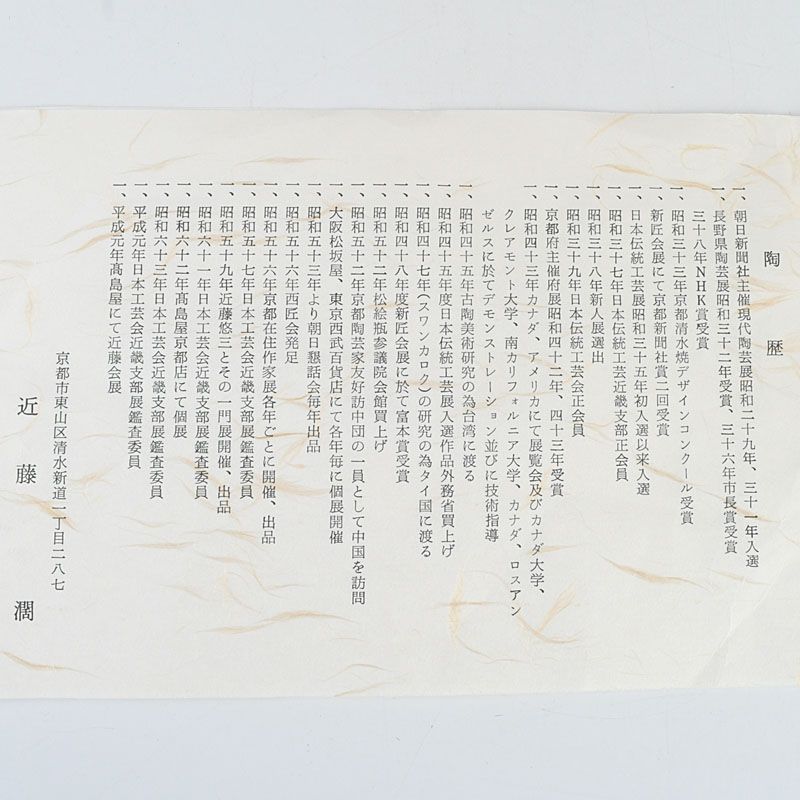 陶歴
一、朝日新聞社主催現代陶芸展昭和二十九年、三十一年入選
一、長野県陶芸展昭和三十二年受賞、三十六年市長賞受賞
三十八年NHK賞受賞
一、昭和三十三年京都清水焼デザインコンクール受賞
一、新匠会展にて京都新聞社賞二回受賞
一、日本伝統工芸展昭和三十五年初入選以来入選
一、昭和三十七年日本伝統工芸近畿支部正会員
一、昭和三十八年新人展選出
一、昭和三十九年日本伝統工芸会正会員
一、京都府主催府展昭和四十二年、四十三年受賞
一、昭和四十三年カナダ、アメリカにて展覧会及びカナダ大学、
クレアモント大学、南カリフォルニア大学、カナダ、ロスアン
ゼルスに於てデモンストレーション並びに技術指導
一、昭和四十五年古陶美術研究の為台湾に渡る
一、昭和四十五年度日本伝統工芸展入選作品外務省買上げ
一、昭和四十七年(スワンカロク)の研究の為タイ国に渡る
一、昭和四十八年度新匠会展に於て富本賞受賞
一、昭和五十二年松絵瓶参議院会館買上げ
一、昭和五十二年京都陶芸家友好訪中団の一員として中国を訪問
一、大阪松坂屋、東京西武百貨店にて各年毎に個展開催
一、昭和五十三年より朝日懇話会毎年出品
一、昭和五十六年西匠会発足
一、昭和五十六年京都在住作家展各年ごとに開催、出品
一、昭和五十七年日本工芸会近畿支部展鑑査委員
一、昭和五十九年近藤悠三とその一門展開催、出品
一、昭和六十一年日本工芸会近畿支部展鑑査委員
一、昭和六十二年髙島屋京都店にて個展
一、昭和六十三年日本工芸会近畿支部展鑑査委員
一、平成元年日本工芸会近畿支部展鑑査委員
一、平成元年髙島屋にて近藤会展
京都市東山区清水新道一丁目二八七
近藤濶